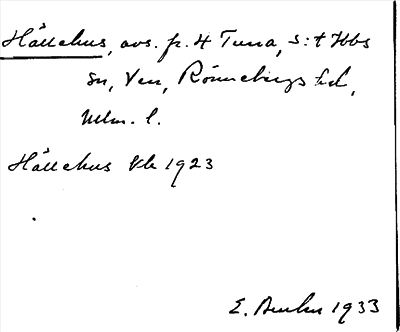 Hällehus, avs. fr. 4 Tuna, S:t Ibbs
sn, Ven, Rönnebergs hd,
Mlm. l.
Hällehus Kb 1923
E. 1933